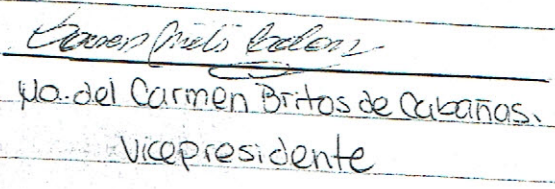 Ma. del Carmen Britos de Cabañas.
Vicepresidente